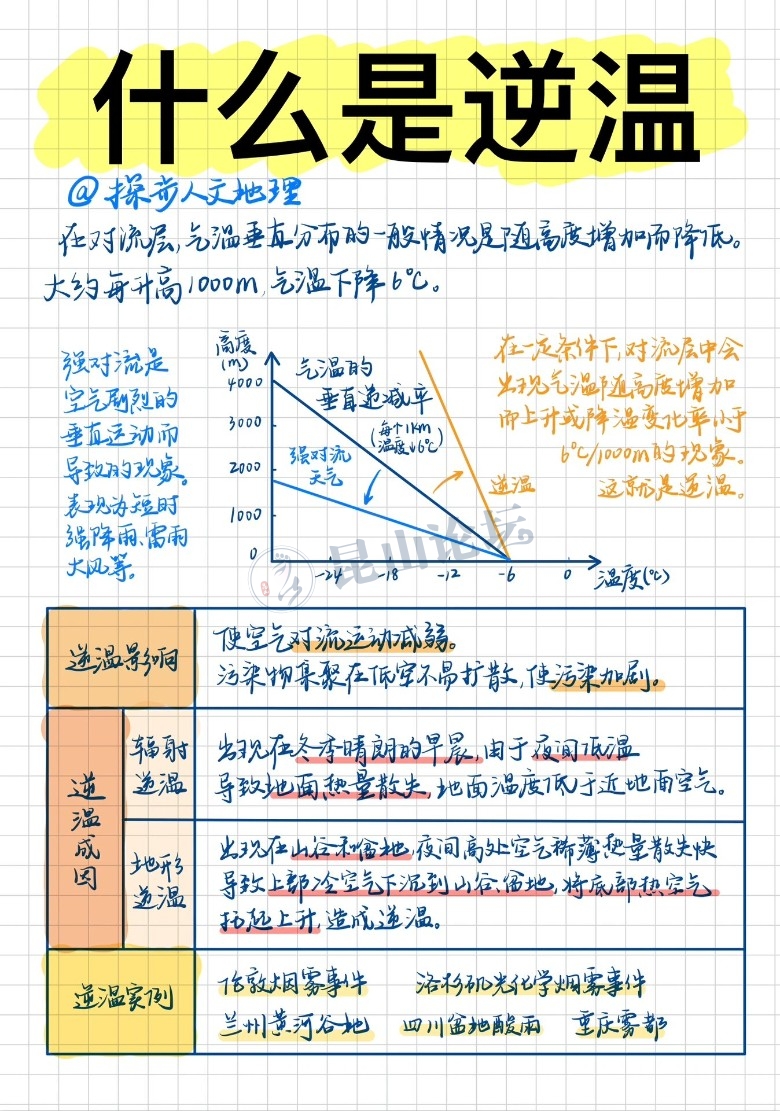 什么是逆温
@探步人文地理
在对流层,气温垂直分布的一般情况是随高度增加而降低。
大约每升高1000m,气温下降6℃。
强对流是
空气剧烈的
垂直运动而
导致的现象。
表现为短时
强降雨、雷雨
大风等。
高度
(m)
4000
3000
2000
1000
0
气温的
垂直递减率
(每个1km
温度↓6℃)
强对流
天气
逆温
-24
-18
-12
-6
0
温度(℃)
在一定条件下,对流层中会
出现气温随高度增加
而上升或降温变化率小于
6℃/1000m的现象。
这就是逆温。
昆山论坛
逆温影响
使空气对流运动减弱。
污染物集聚在低空不易扩散,使污染加剧。
逆温成因
辐射
逆温
出现在冬季晴朗的早晨,由于夜间低温
导致地面热量散失,地面温度低于近地面空气。
地形
逆温
出现在山谷和盆地,夜间高处空气稀薄热量散失快
导致上部冷空气下沉到山谷、盆地,将底部热空气
抬起上升,造成逆温。
逆温实例
伦敦烟雾事件 洛杉矶光化学烟雾事件
兰州黄河谷地 四川盆地酸雨 重庆雾都